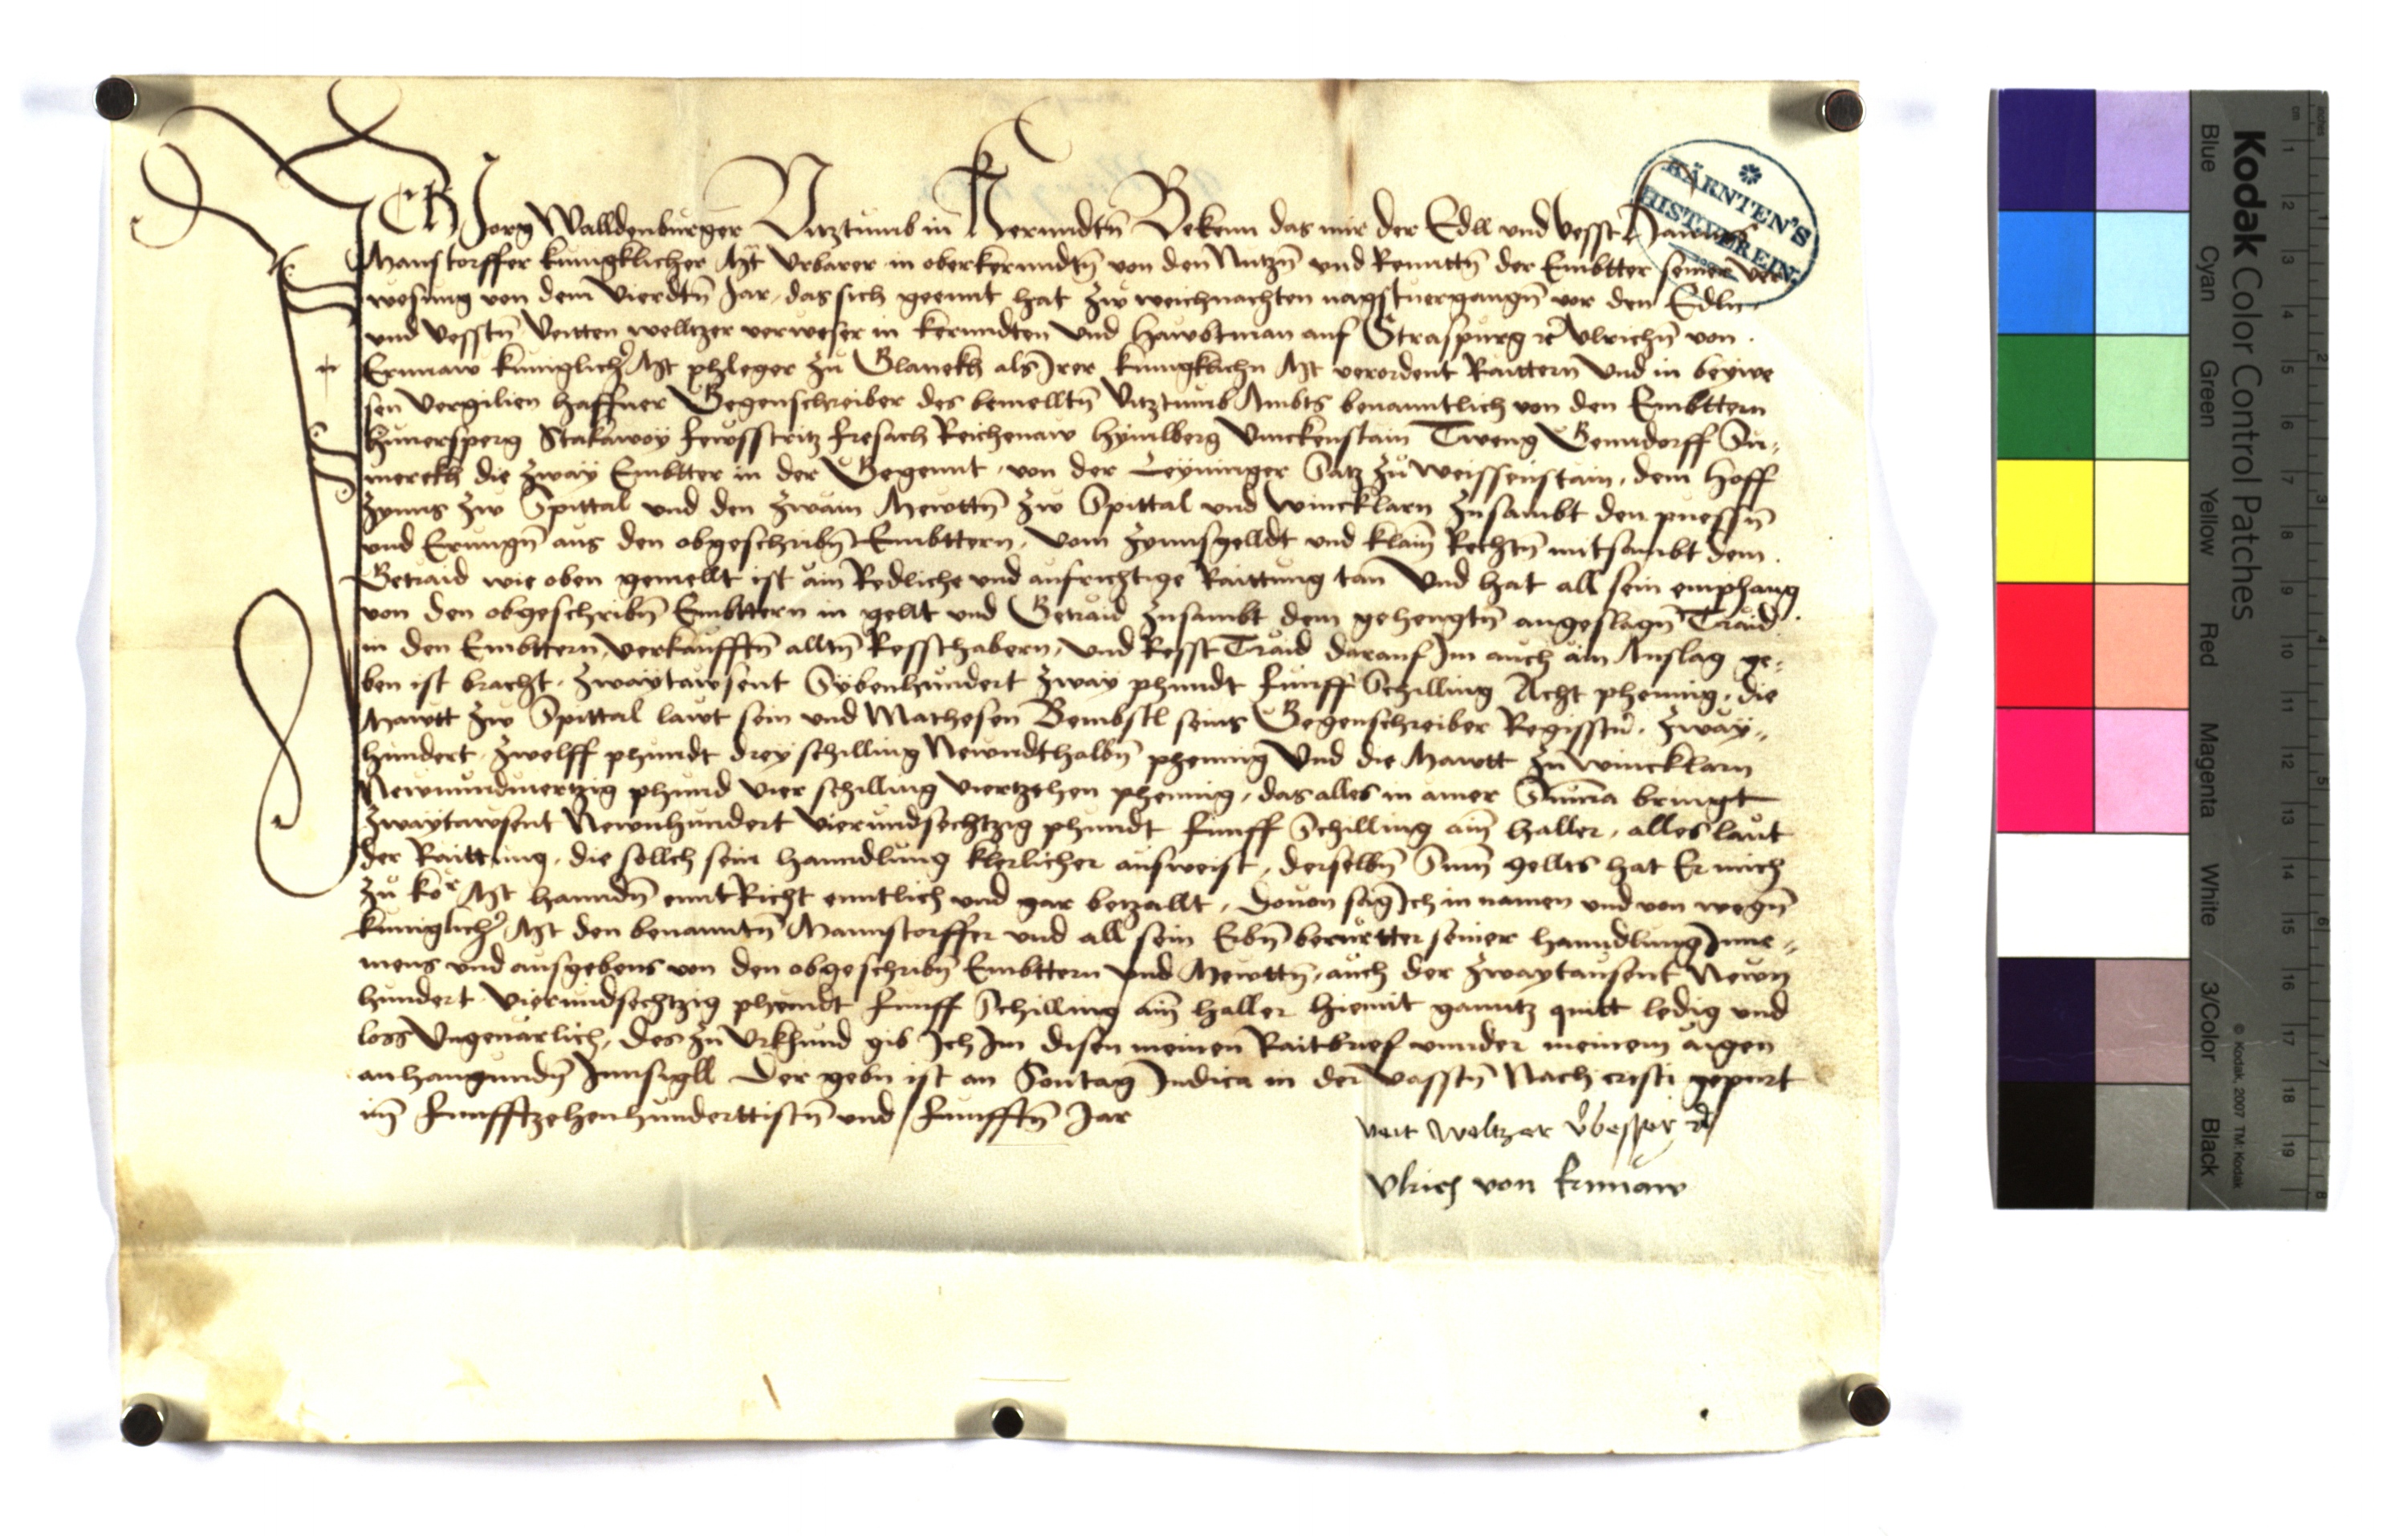 ICH Jorg Walldenburger Vitztumb in Kernndtn̄ Bekenn das mir der Edll vnd vesst
Manstorffer kunigklicher Mt Vrbarer in oberkernndtn̄ von den Nutzn̄ vnd Rennttn̄ der Embtter seiner ver
wesung von dem vierdtn̄ Jar, das sich geennt hat zw weichnachten nagstuergangn̄ vor den Edln
vnd vesstn̄ veitten welltzer verweser in kernndten vnd hawbtman auf Straspurg ⁊c̄ Vlrichn̄ von
Ernnaw kuniglicher Mt phleger zu Glanekh als Irer kunigklichn Mt verordent Raittern vnd in beywe
sen Vergilien haffner Gegenschreiber des bemelltn̄ Vitztumb Ambts benanntlich von den Embttern
hunersperg Stakawoy fewsstritz fresach Reichenaw hymlberg Vinckenstain Tweng Genndorff Su-
merekh die zway Embtter in der Gegennt, von der Leyninger Satz zu weissenstain, dem hoff
zynns zw Spittal vnd den zwain Mewttn̄ zw Spittal vnd wincklarn zusambt den puessn̄
vnd Erungn̄ aus den obgeschribn̄ Embttern, vom zynnsgelldt vnd klain̄ Rechtn̄ mitsambt dem
Getraid wie oben gemellt ist ain Redliche vnd aufrichtige Raittung tan vnd hat all sein emphang
von den obgeschribn̄ Embttern in gellt vnd Getraid zusambt dem gehengtn̄ angeslagn̄ Traid
in den Embttern, verkaufftn̄ alltn̄ Resthabern, vnd Resst Traid darauf Im auch ain Anslag ge-
ben ist bracht, zwaytawsent Sybenhundert zway phundt funff Schilling Acht phennig, die
Mawtt zw Spittal lawt sein vnd Mathesen Bembstl seins Gegenschreiber Regisstr̄, zway-
hundert, zwelff phundt drey schilling Newndthalbn̄ phennig vnd die Mawtt zu wincklarn
Newnundviertzig phund vier schilling viertzehen phennig, das alles in ainer Suma bringt
zwaytawsent Newnhundert vierundsechtzig phundt funff Schilling ain̄ haller, alles laut
der Raittung, die sollch sein hanndlung klerlicher ausweist, derselbn̄ Sum̄ gelltes hat Er mich
zu ko̊r Mt hanndn̄ enntRicht enntlich vnd gar betzallt, Dauon sag Ich in namen vnd von wegn̄
kuniglicher Mt den benanntn̄ Mannstorffer vnd all sein Erbn̄ berurtter seiner hanndlung Inne-
mens vnd ausgebens von den obgeschribn̄ Embttern vnd Mewttn̄, auch der zwaytausent Newn
hundert vierundsechtzig phundt funff Schilling ain̄ haller hiemit ganntz quitt ledig vnd
loss vngeuarlich, Des zu Vrkhund gib Ich Im disen meinen Raitbrief vnnder meinem aigen
anhangundn̄ Innsigll Der gebn ist an Sontag Judica in der vasstn̄ Nach cristi gepurt
im̄ funfftzehenhunderttistn̄ vnd funfftn̄ Jar
veit weltzer ⁊c̄
Vlrich von Ernnaw
KÄRNTEN'S
HIST. VEREIN.
Kodak Color Control Patches
Blue Cyan Green Yellow Red Magenta White 3/Color Black
© Kodak, 2007 TM: Kodak
cm 1 2 3 4 5 6 7 8 9 10 11 12 13 14 15 16 17 18 19
inches 1 2 3 4 5 6 7 8